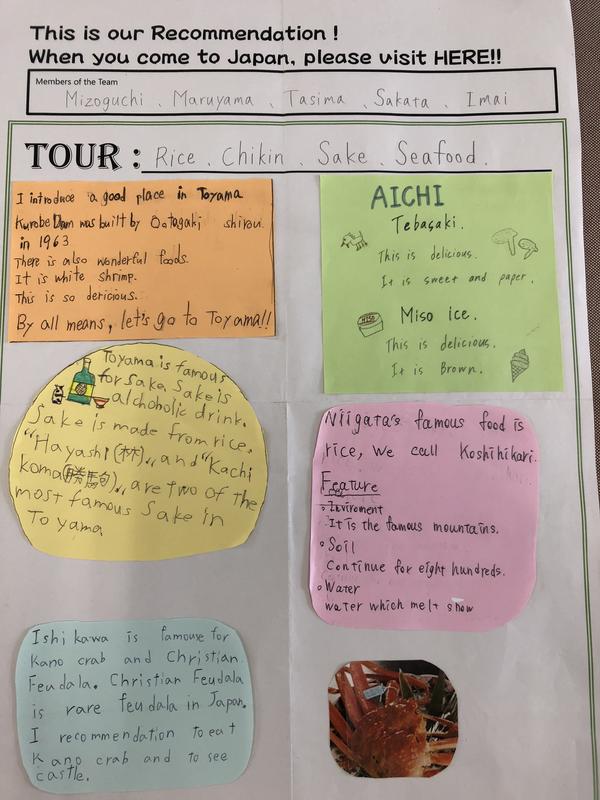 This is our Recommendation !
When you come to Japan, please visit HERE!!
Members of the Team
Mizoguchi、Maruyama、Tasima、Sakata、Imai
TOUR : Rice、Chikin、Sake、Seafood.
I introduce a good place in Toyama
Kurobe Dam was built by Ootagaki shirou.
in 1963
There is also wonderful foods.
It is white shrimp.
This is so dericious.
By all means, let's go to Toyama!!
AICHI
Tebasaki.
This is delicious.
It is sweet and paper.
Miso ice.
MISO
This is delicious.
It is Brown.
Toyama is famous
for Sake. Sake is
alchoholic drink.
Sake is made from rice.
"Hayashi(林)" and "Kachi
koma(勝駒)" are two of the
most famous Sake in
Toyama
Niigata's famous food is
rice, We call Koshihikari.
Feature
Inviroment
It is the famous mountains.
Soil
Continue for eight hundreds.
Water
water which melt snow
Ishikawa is famouse for
Kano crab and Christian
Feudala. Christian Feudala
is rare feudala in Japan.
I recommendation to eat
Kano crab and to see
castle.